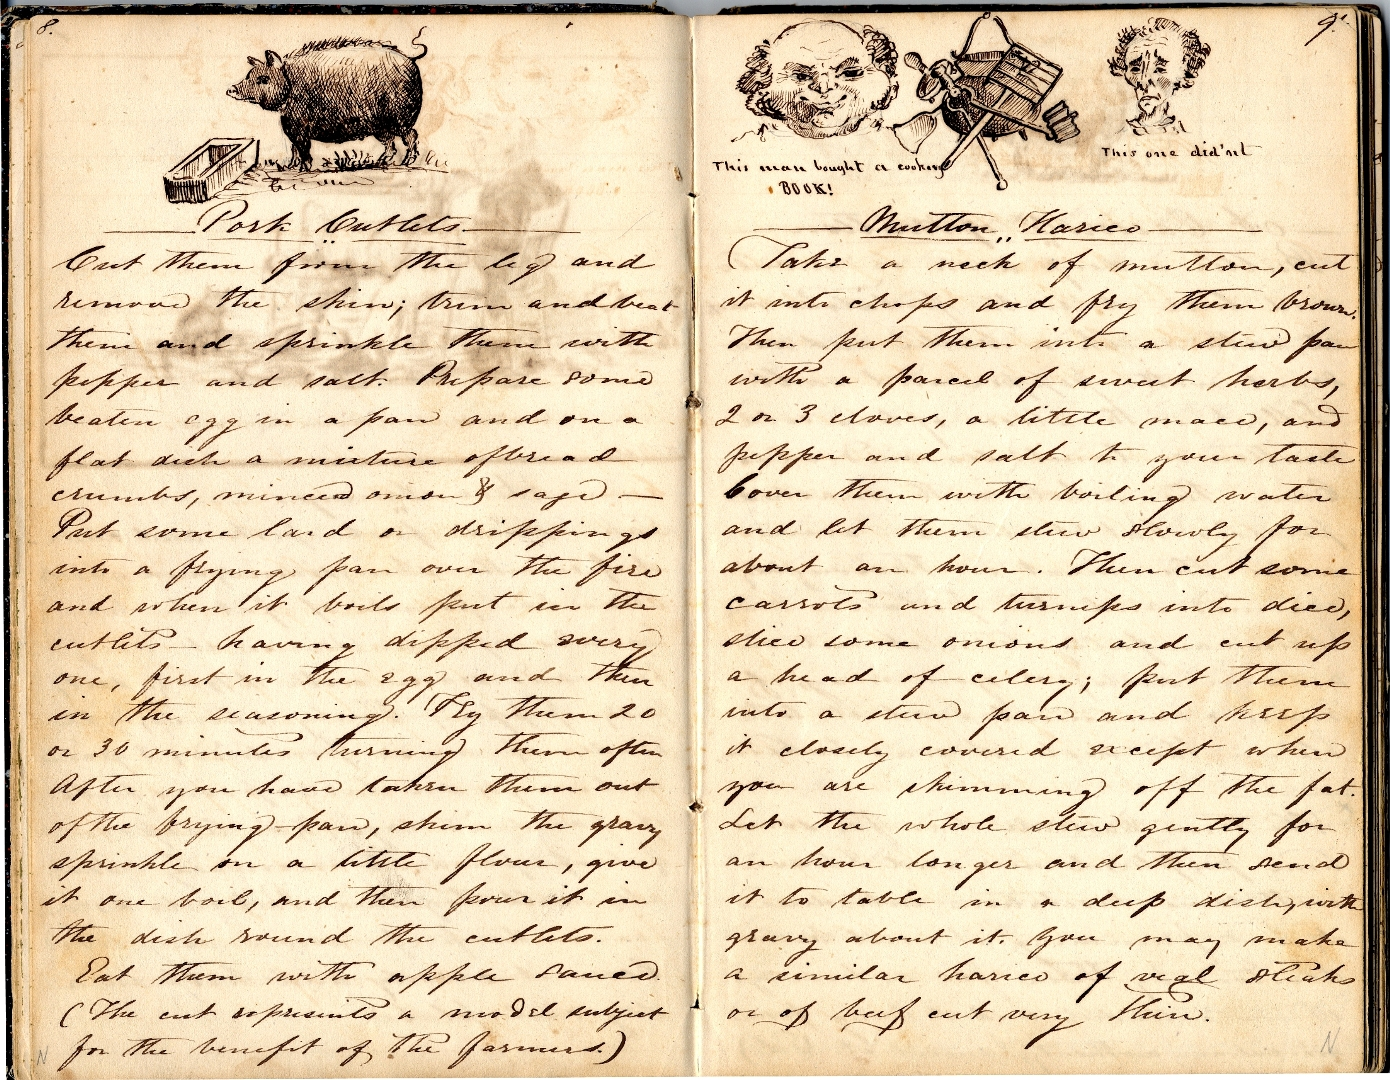 8.
Pork Cutlets.
Cut them from the leg and
remove the skin; trim and beat
them and sprinkle them with
pepper and salt. Prepare some
beaten egg in a pan and on a
flat dish a mixture of bread
crumbs, minced onion & sage —
Put some lard or drippings
into a frying pan over the fire
and when it boils put in the
cutlets — having dipped every
one, first in the egg and then
in the seasoning. Fry them 20
or 30 minutes turning them often
After you have taken them out
of the frying-pan, skim the gravy
sprinkle on a little flour, give
it one boil, and then pour it in
the dish round the cutlets.
Eat them with apple sauce.
(The cut represents a model subject
for the benefit of the farmers.)
N
9.
This man bought a cooking
BOOK!
This one did'nt
Mutton Harico
Take a neck of mutton, cut
it into chops and fry them brown.
Then put them into a stew pan
with a parcel of sweet herbs,
2 or 3 cloves, a little mace, and
pepper and salt to your taste
Cover them with boiling water
and let them stew slowly for
about an hour. Then cut some
carrots and turnips into dice,
slice some onions and cut up
a head of celery; put them
into a stew pan and keep
it closely covered except when
you are skimming off the fat.
Let the whole stew gently for
an hour longer and then send
it to table in a deep dish, with
gravy about it. You may make
a similar harico of veal steaks
or of beef cut very thin.
N